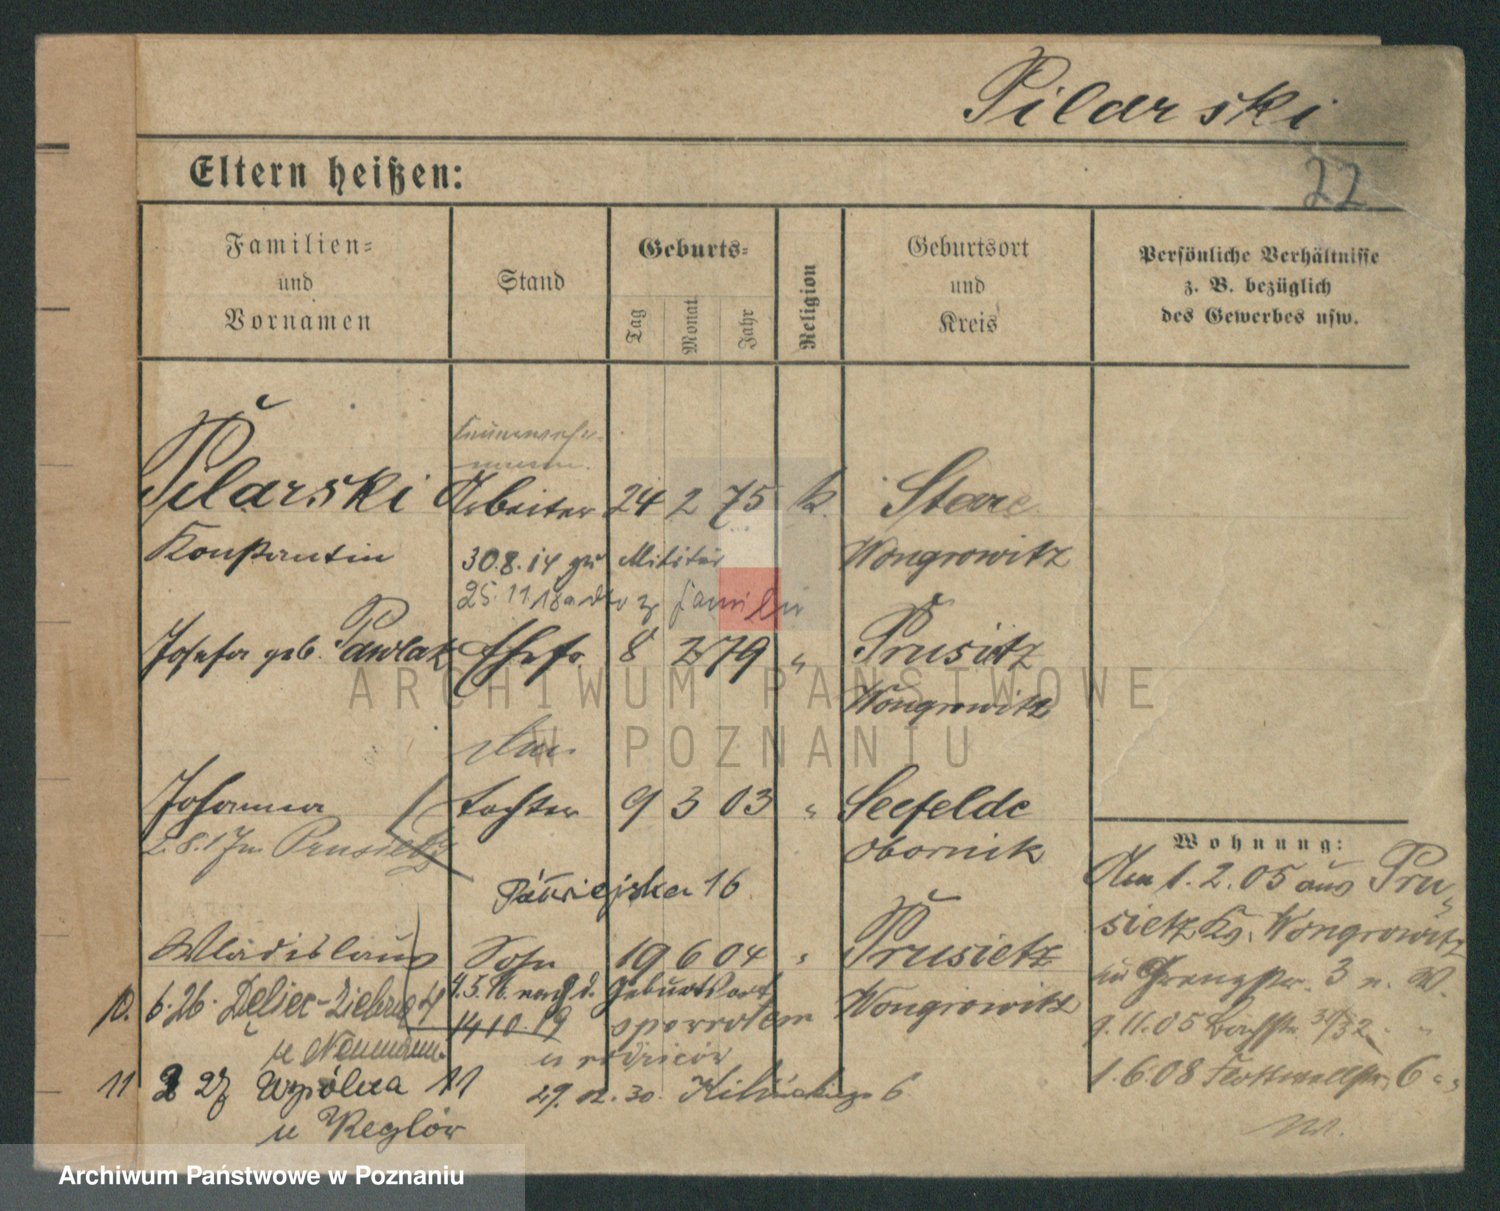 Pilarski
22
Eltern heißen:
Familien- und Vornamen
Stand
Geburts-
Tag
Monat
Jahr
Religion
Geburtsort und Kreis
Persönliche Verhältnisse z. B. bezüglich des Gewerbes usw.
Pilarski Arbeiter 24 2 75 k. Stare
Konstantin 30.8.14 zu Militär Wongrowitz
25.11.18 Familie
Josefa geb. Pawlak Ehefr. 8 2 79 " Prusitz
Wongrowitz
Johanna Tochter 9 3 03 " Seefelde
Prusietz Obornik
16
Wladislaus Sohn 19 6 04 " Prusietz
4.5.16. nach d. Geburtsort Wongrowitz
10. 6.26.
14 10. 19 z powrotem
u Neumann.
u rodziców
11 27 Wspólna 11
29. 12. 30. 6
u Reglów
Wohnung:
Am 1.2.05 aus Pru-
sietz Kr. Wongrowitz
in Grenzstr. 3 n. W.
9.11.05 30/32
1.6.08 Flottwellstr. 6
ARCHIWUM PAŃSTWOWE
W POZNANIU
Archiwum Państwowe w Poznaniu